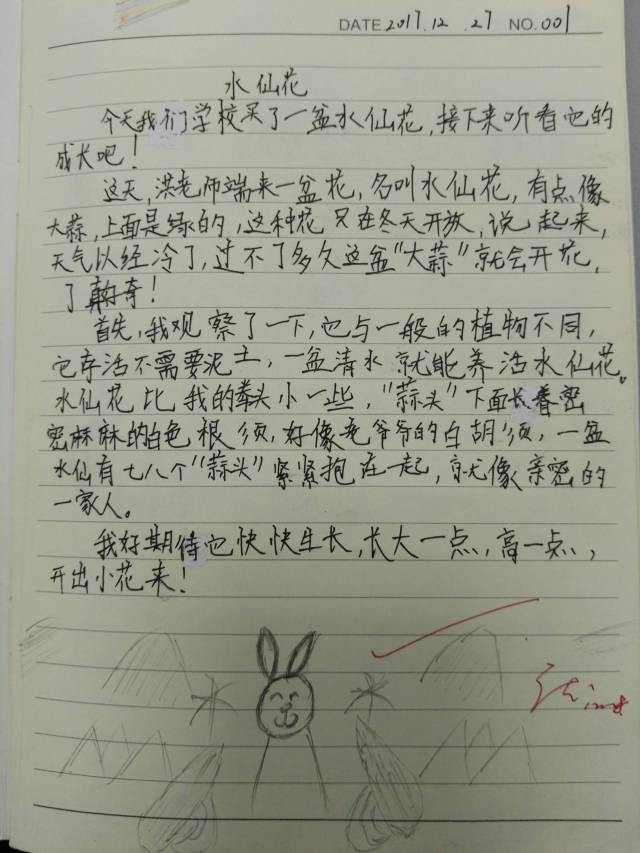 DATE 2017.12.27 NO.001
水仙花
今天我们学校买了一盆水仙花,接下来听看它的
成长吧!
这天,洪老师端来一盆花,名叫水仙花,有点像
大蒜,上面是绿的,这种花只在冬天开放,说起来,
天气以经冷了,过不了多久这盆"大蒜"就会开花,
了真好奇!
首先,我观察了一下,它与一般的植物不同,
它存活不需要泥土,一盆清水就能养活水仙花。
水仙花比我的拳头小一些,"蒜头"下面长着密
密麻麻的白色根须,好像老爷爷的白胡须,一盆
水仙有七八个"蒜头"紧紧抱在一起,就像亲密的
一家人。
我好期待它快快生长,长大一点,高一点,
开出小花来!